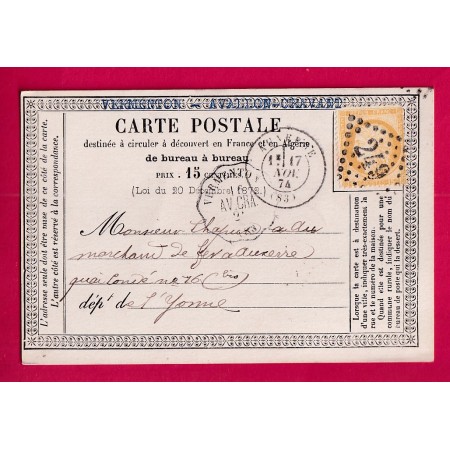 VERMENTON - AVALLON-CRAVANT
CARTE POSTALE
destinée à circuler à découvert en France et en Algérie
de bureau à bureau.
PRIX . 15 CENTIMES
(Loi du 20 Décembre 1872.)
17
NOV.
74
(83)
AV.CRA
216
Monsieur
marchand de fer auxerre
quai Condé no 76 (bis)
dépt de l'Yonne
L'adresse seule doit être mise de ce côté de la carte.
L'autre côté est réservé à la correspondance.
Lorsque la carte est à destination
d'une ville, indiquer très-exactement la
rue et le numéro de la maison.
Quand elle est destinée pour une
commune rurale, indiquer le nom du
bureau de poste qui la dessert.